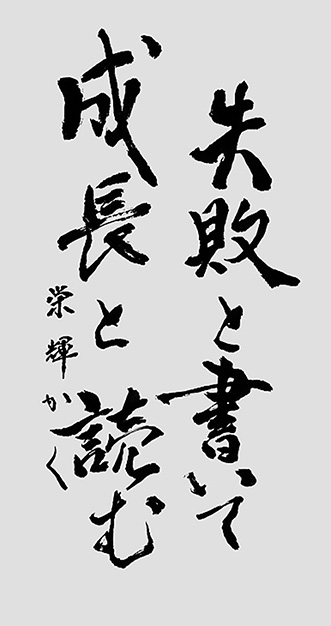 失敗と書いて
成長と読む
栄輝かく